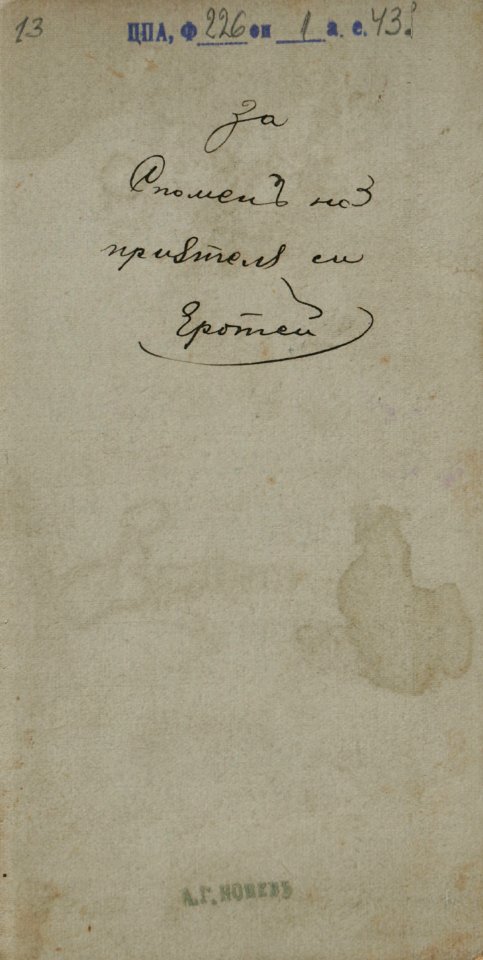 13
ЦПА, Ф 226 оп 1 а. е. 43
за
Споменъ на
приятеля си
Еротей